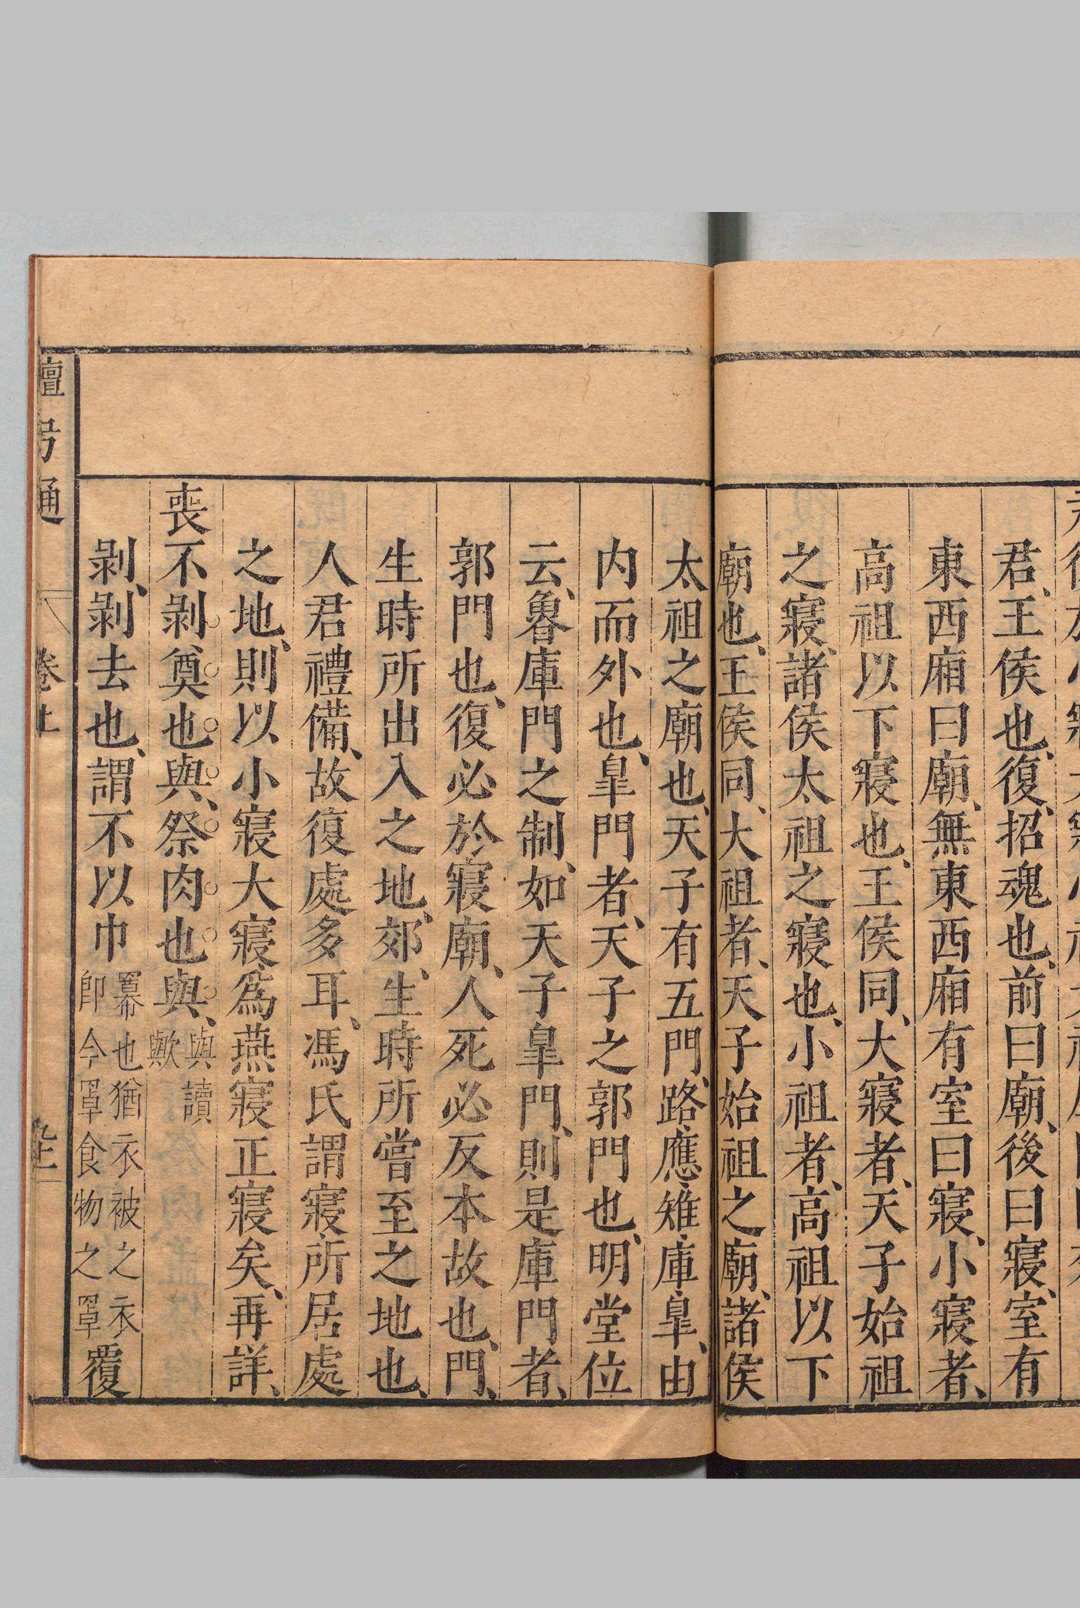 君、王侯也、復、招魂也、前曰廟、後曰寢、室有
東西廂曰廟、無東西廂有室曰寢、小寢者、
高祖以下寢也、王侯同、大寢者、天子始祖
之寢、諸侯太祖之寢也、小祖者、高祖以下
廟也、王侯同、大祖者、天子始祖之廟、諸侯
太祖之廟也、天子有五門、路應雉庫皐、由
内而外也、皐門者、天子之郭門也、明堂位
云、魯庫門之制、如天子皐門、則是庫門者、
郭門也、復必於寢廟、人死必反本故也、門、
生時所出入之地、郊、生時所嘗至之地也、
人君禮備、故復處多耳、馮氏謂寢所居處
之地、則以小寢大寢、爲燕寢正寢矣、再詳、
喪不剥、奠也與、祭肉也與、與讀歟
剥、剥去也、謂不以巾冪也猶衣被之衣即今罩食物之罩覆
檀弓通 卷上